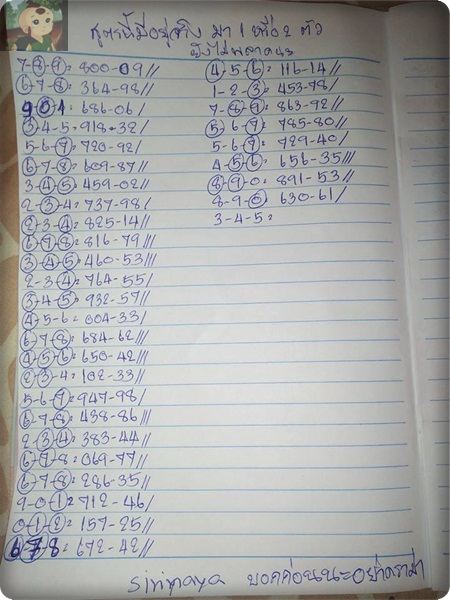 สูตรนี้มีอยู่จริง มา 1 หรือ 2 ตัว
ยังไม่พลาดนะ
7-8-9= 800-09//
6-7-8= 364-98//
9-0-1= 686-06/
3-4-5= 918-32/
5-6-7= 720-92/
6-7-8= 609-87//
3-4-5= 459-02//
2-3-4= 737-98/
2-3-4= 825-14//
6-7-8= 816-79///
3-4-5= 460-53///
2-3-4= 764-55/
3-4-5= 932-57//
4-5-6= 004-33/
6-7-8= 684-62//
4-5-6= 650-42///
2-3-4= 102-33//
5-6-7= 947-98/
6-7-8= 438-86///
2-3-4= 383-44//
6-7-8= 069-77//
6-7-8= 286-35//
9-0-1= 712-46/
0-1-2= 157-25//
6-7-8= 672-42//
4-5-6= 116-14//
1-2-3= 453-78/
7-8-9= 863-92//
5-6-7= 785-80//
5-6-7= 729-40//
4-5-6= 656-35///
8-9-0= 891-53//
8-9-0= 630-61/
3-4-5=
siripaya บอกก่อนนะอย่าดราม่า